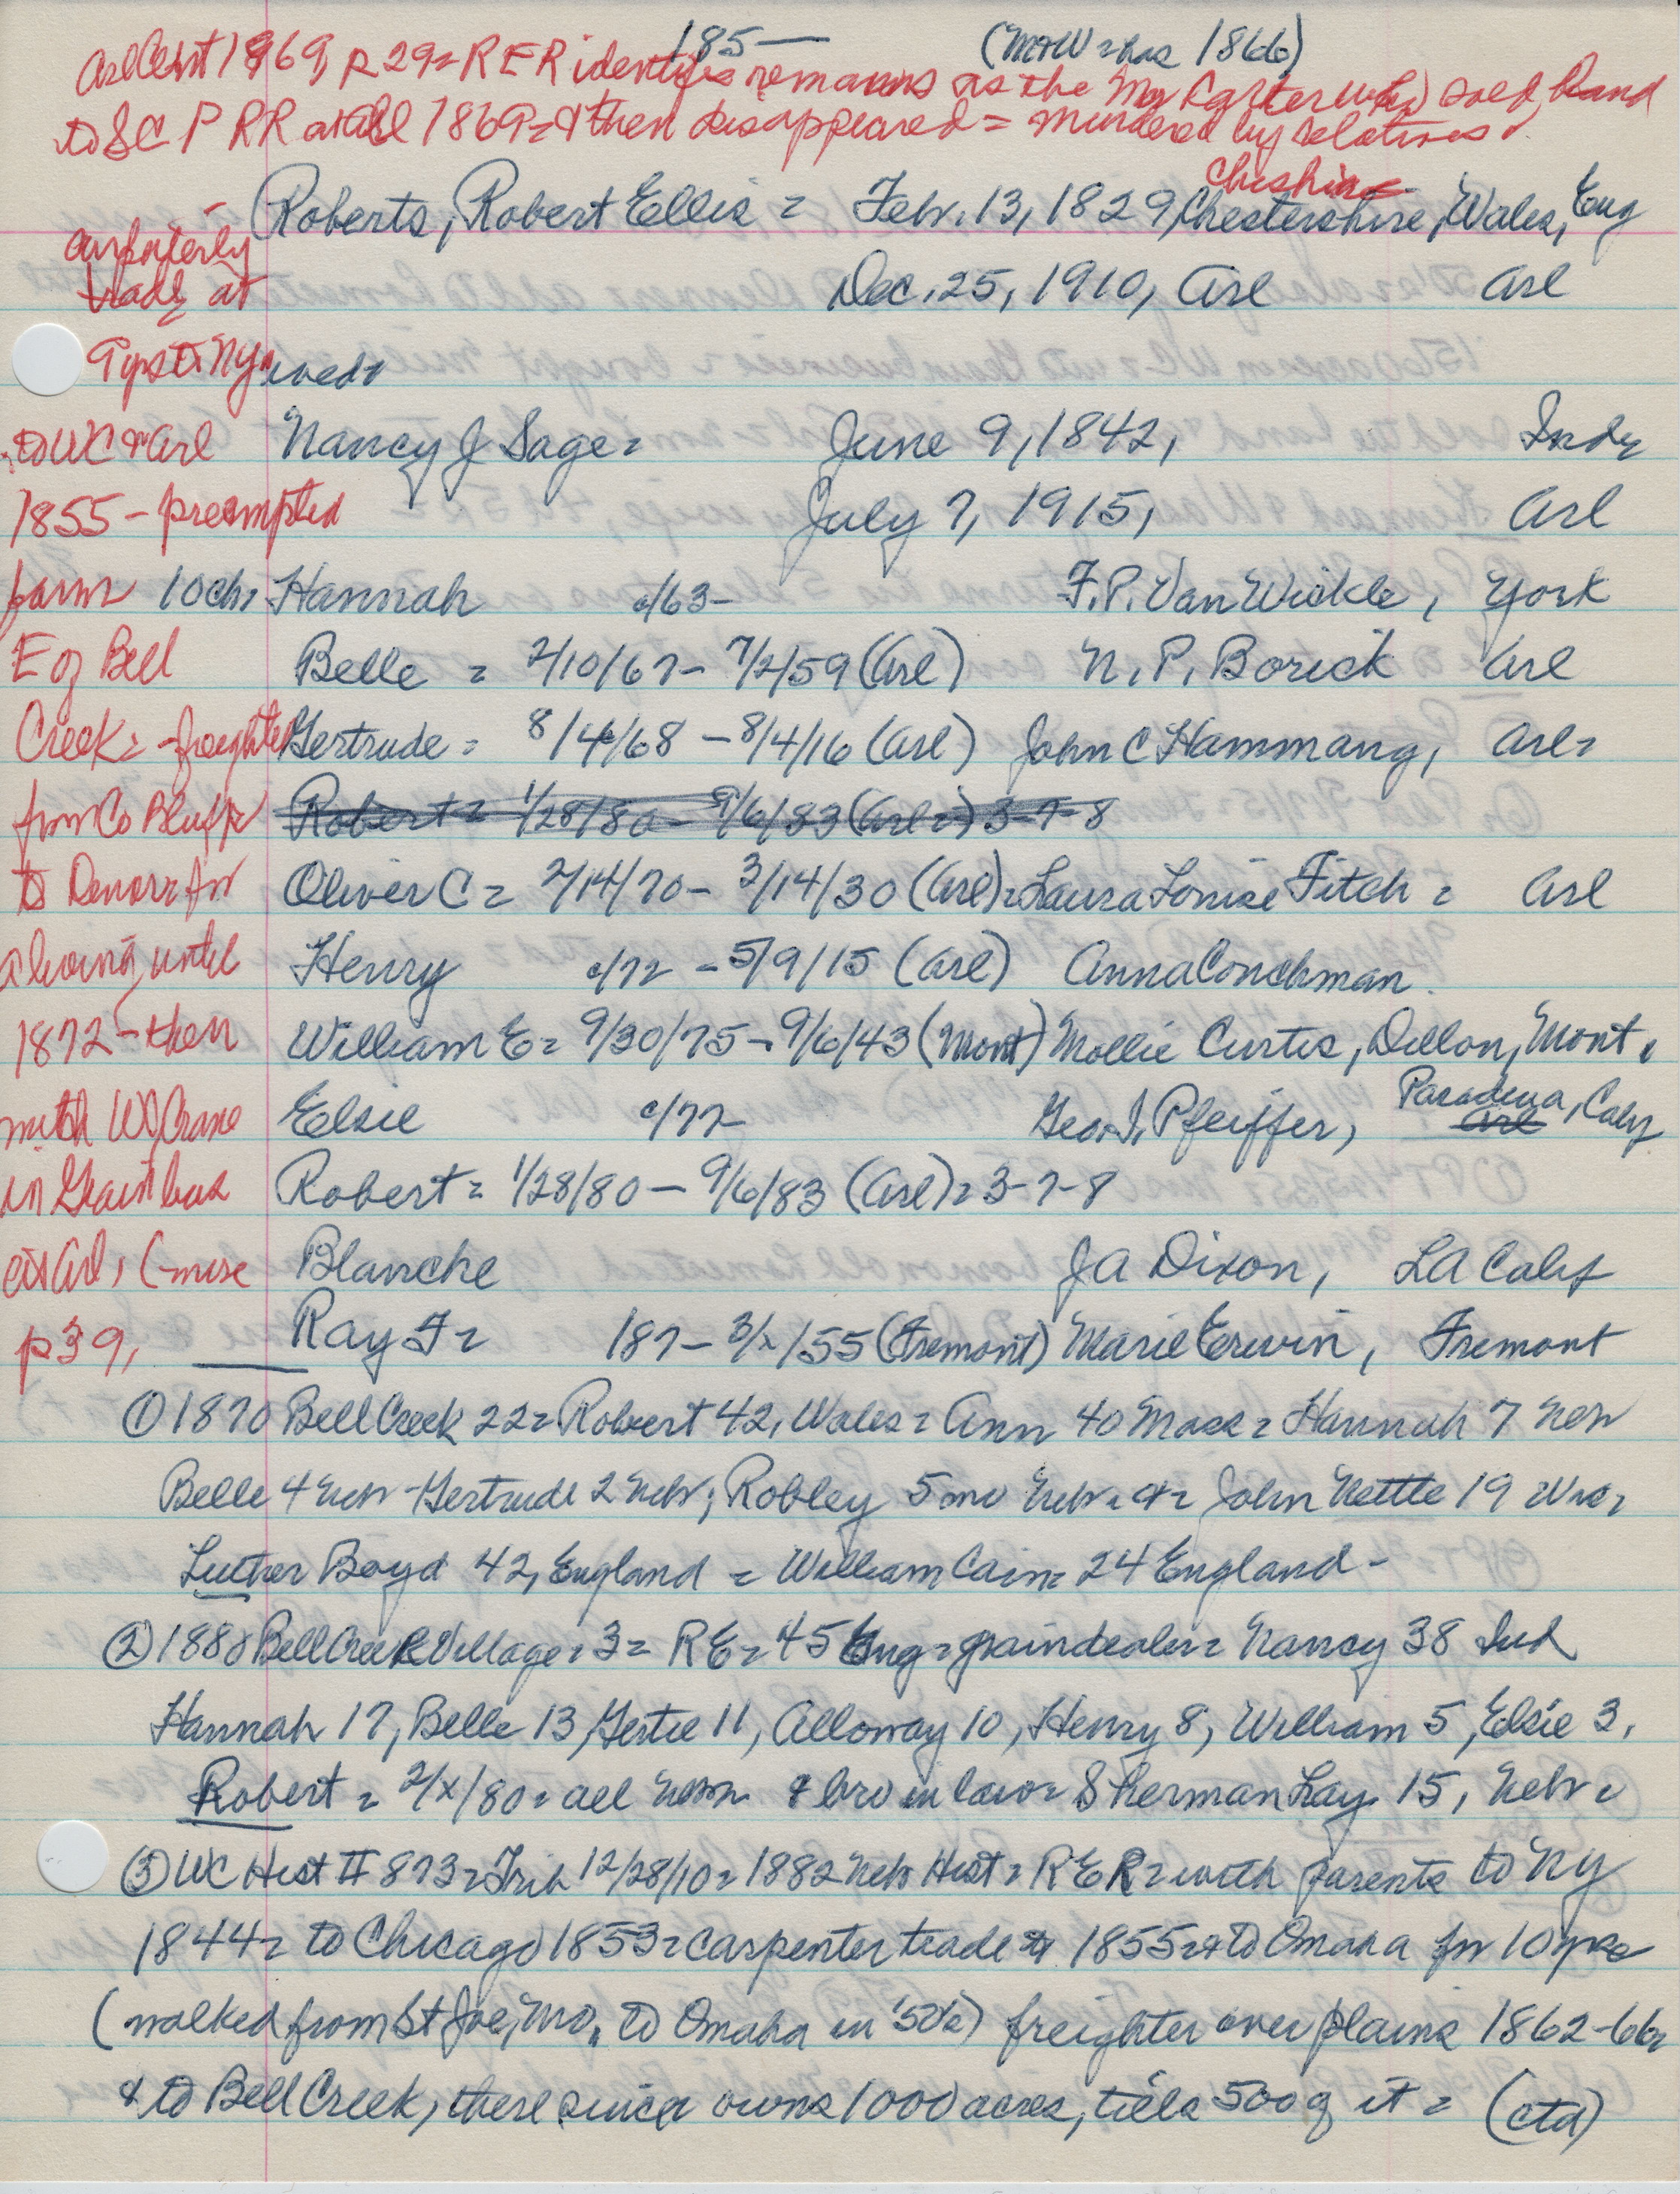 185—          (M&W = has 1866)
Arl Cent 1969, p 29 = RER identifies remains as the Mr Carter who sold land
to SC P RR at Arl 1869 = & then disappeared = murdered by relatives.
Cheshire
Roberts, Robert Ellis = Febr. 13, 1829, Chestershire, Wales, Eng
Dec. 25, 1910, Arl          Arl
carpenter by
trade at
NY
wed
to WC & Arl
Nancy J Sage =          June 9, 1842,          Indr
1855 - preempted
July 7, 1915,          Arl
farm 10 chs
Hannah          c/63-          F. P. Van Wickle, York
E of Bell
Belle = 2/10/67 - 7/2/59 (Arl)          N. P. Borick          Arl
Creek = freighter
Gertrude = 8/14/68 - 8/4/16 (Arl) John C Hammang, Arl =
from Co Bluffs
Robert = 1/28/80 - 9/6/83 (Arl =) 3-7-8
to Denver for
Oliver C = 2/14/70 - 3/14/30 (Arl) = Laura Louise Fitch = Arl
a living until
Henry          c/72 - 5/9/15 (Arl) Anna Conchman
1872 - then
William E = 9/30/75 - 9/6/43 (Mont) Mollie Curtis, Dillon, Mont.
with WJ Crane
Elsie          c/77-          Geo. I. Pfeiffer, Arl Pasadena, Calif
in Grain bus
Robert = 1/28/80 - 9/6/83 (Arl) = 3-7-8
at Arl, (-more
Blanche          J A Dixon, LA Calif
p 39,
Ray F =          187- 3/x/55 (Fremont) Marie Erwin, Fremont
① 1870 Bell Creek 22 = Robert 42, Wales = Ann 40 Mass = Hannah 7 Nebr
Belle 4 Nebr - Gertrude 2 Nebr; Robley 5 mo Nebr. & = John Nettle 19 Wis,
Luther Boyd 42, England = William Cain = 24 England -
② 1880 Bell Creek Village = 3 = RE = 45 Eng = grain dealer = Nancy 38 Ind
Hannah 17, Belle 13, Gertie 11, Alloway 10, Henry 8, William 5, Elsie 3,
Robert = 2/x/80 = all Nebr & bro in law = Sherman Lay 15, Nebr =
③ WC Hist II 873 = Trib 12/28/10 = 1882 Nebr Hist = RER = with parents to NY
1844 = to Chicago 1853 = carpenter trade & 1855 = & to Omaha for 10 yrs
(walked from St Joe, Mo. to Omaha in '50s) freighter over plains 1862-66,
& to Bell Creek, there since owns 1000 acres, tills 500 of it = (ctd)